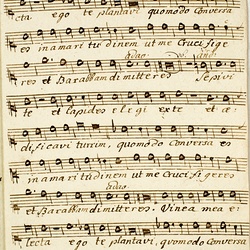 cta ego te plantavi quomodo Conversa
es in amari tu dinem ut me Cruci fige
res et Barabbam dimitteres Sepivi
te et lapides elegi ex te et æ
dificavi turrim, quomodo Conversa es
in amari tudinem ut me Cruci figeres
et Barabbam dimitteres. Vinea mea e
lecta ego te plantavi, quomodo Conversa